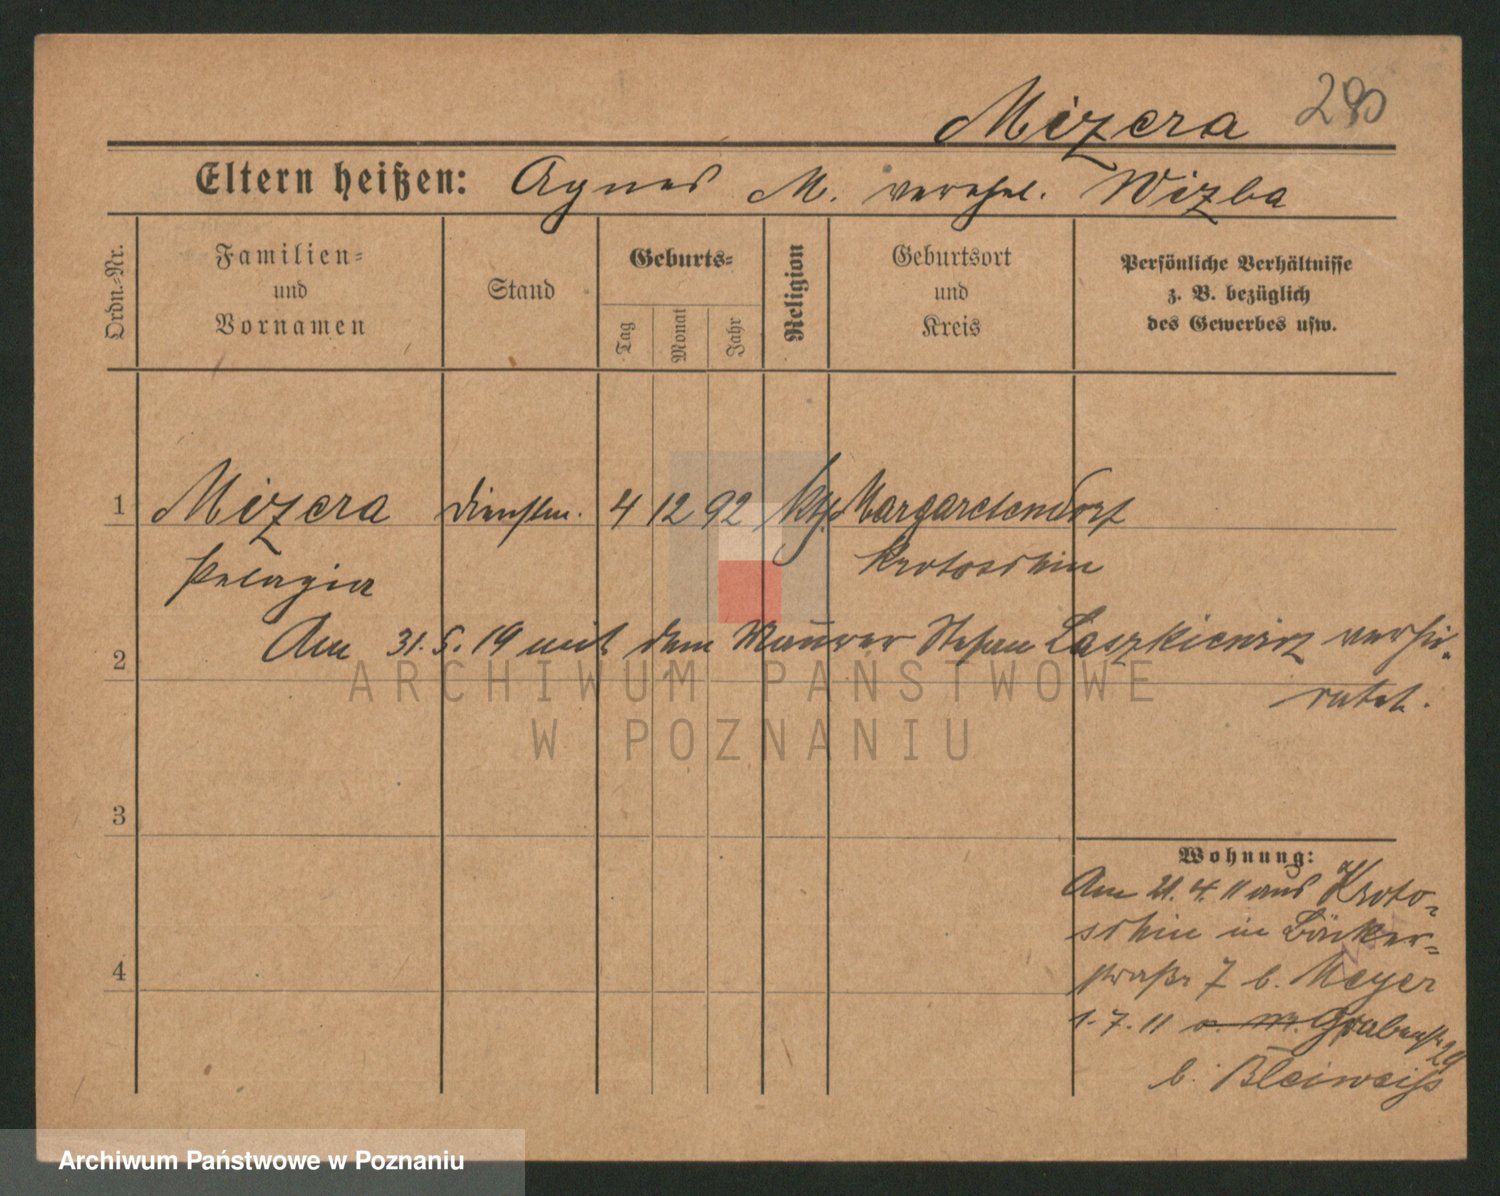 Mizera 280
Eltern heißen: Agnes M. verehel. Wizba
Ordn.-Nr.
Familien-
und
Vornamen
Stand
Geburts-
Tag
Monat
Jahr
Religion
Geburtsort
und
Kreis
Persönliche Verhältnisse
z. B. bezüglich
des Gewerbes usw.
1 Mizera Dienstm. 4 12 92 kth Margaretendorf
Pelagia Krotoschin
Am 31. 5. 19 mit dem Maurer Stefan Laszkiewicz verhei-
2
ratet.
3
4
Wohnung:
Am 21. 4. 11 aus Kroto-
schin in Bäcker-
straße 7 b. Meyer
1. 7. 11 Grabenstr 29
b. Bleiweiss
ARCHIWUM PAŃSTWOWE
W POZNANIU
Archiwum Państwowe w Poznaniu